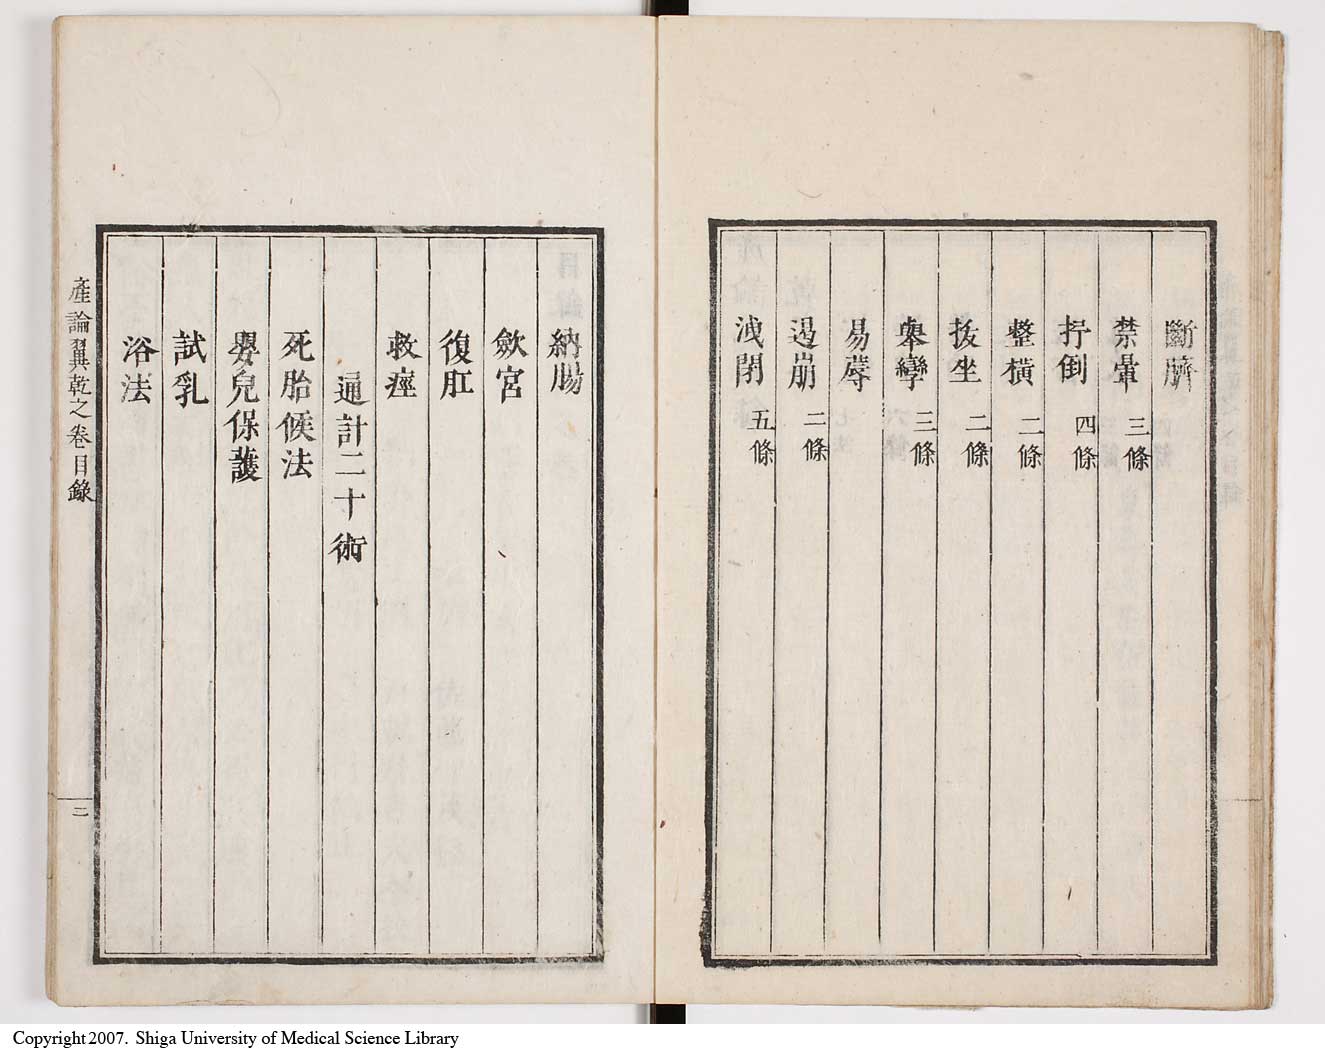 斷臍
禁暈 三條
拧倒 四條
整橫 二條
扳坐 二條
舉攣 三條
易蓐
遏崩 二條
洩閉 五條
納腸
斂宮
復肛
救痙
通計二十術
死胎候法
嬰兒保護
試乳
浴法
產論翼乾之卷目錄
二
Copyright 2007. Shiga University of Medical Science Library